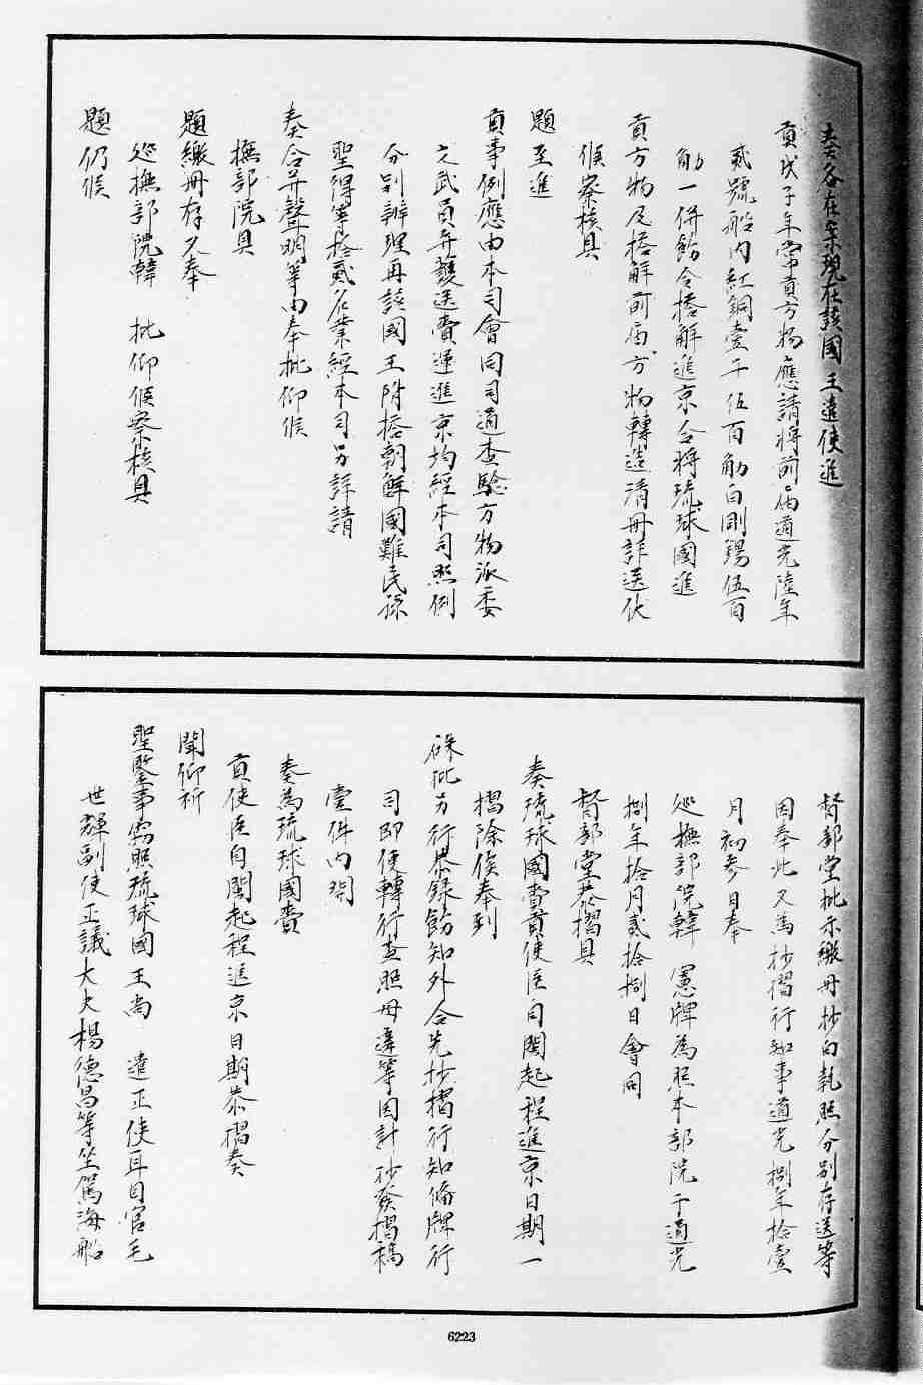 奏咨在案現在該國王遣使進
貢戊子年常貢方物應請將前項道光陸年
貳號船內紅銅壹千伍百觔白剛錫伍百
觔一併飭令搭解進京合將琉球國進
貢方物及搭解前項方物轉造清冊詳送伏
候察核具
題至進
貢事例應由本司會同司道查驗方物派委
文武員弁護送賫運進京均經本司照例
分別辦理再該國王附搭朝鮮國難民孫
聖得等拾貳名業經本司另詳請
奏合并聲明等由奉批仰候
撫部院具
題繳冊存又奉
巡撫部院韓 批仰候察核具
題仍候
督部堂批示繳冊抄白執照分別存送等
因奉此又為抄摺行知事道光捌年拾壹
月初參日奉
巡撫部院韓 憲牌為照本部院于道光
捌年拾月貳拾捌日會同
督部堂恭摺具
奏琉球國賫貢使臣自閩起程進京日期一
摺除俟奉到
硃批另行恭錄飭知外合先抄摺行知備牌行
司即便轉行查照毋違等因計抄發摺稿
壹件內開
奏為琉球國賫
貢使臣自閩起程進京日期恭摺奏
聞仰祈
聖鑒事竊照琉球國王尚 遣正使耳目官毛
世輝副使正議大夫楊德昌等坐駕海船
6223